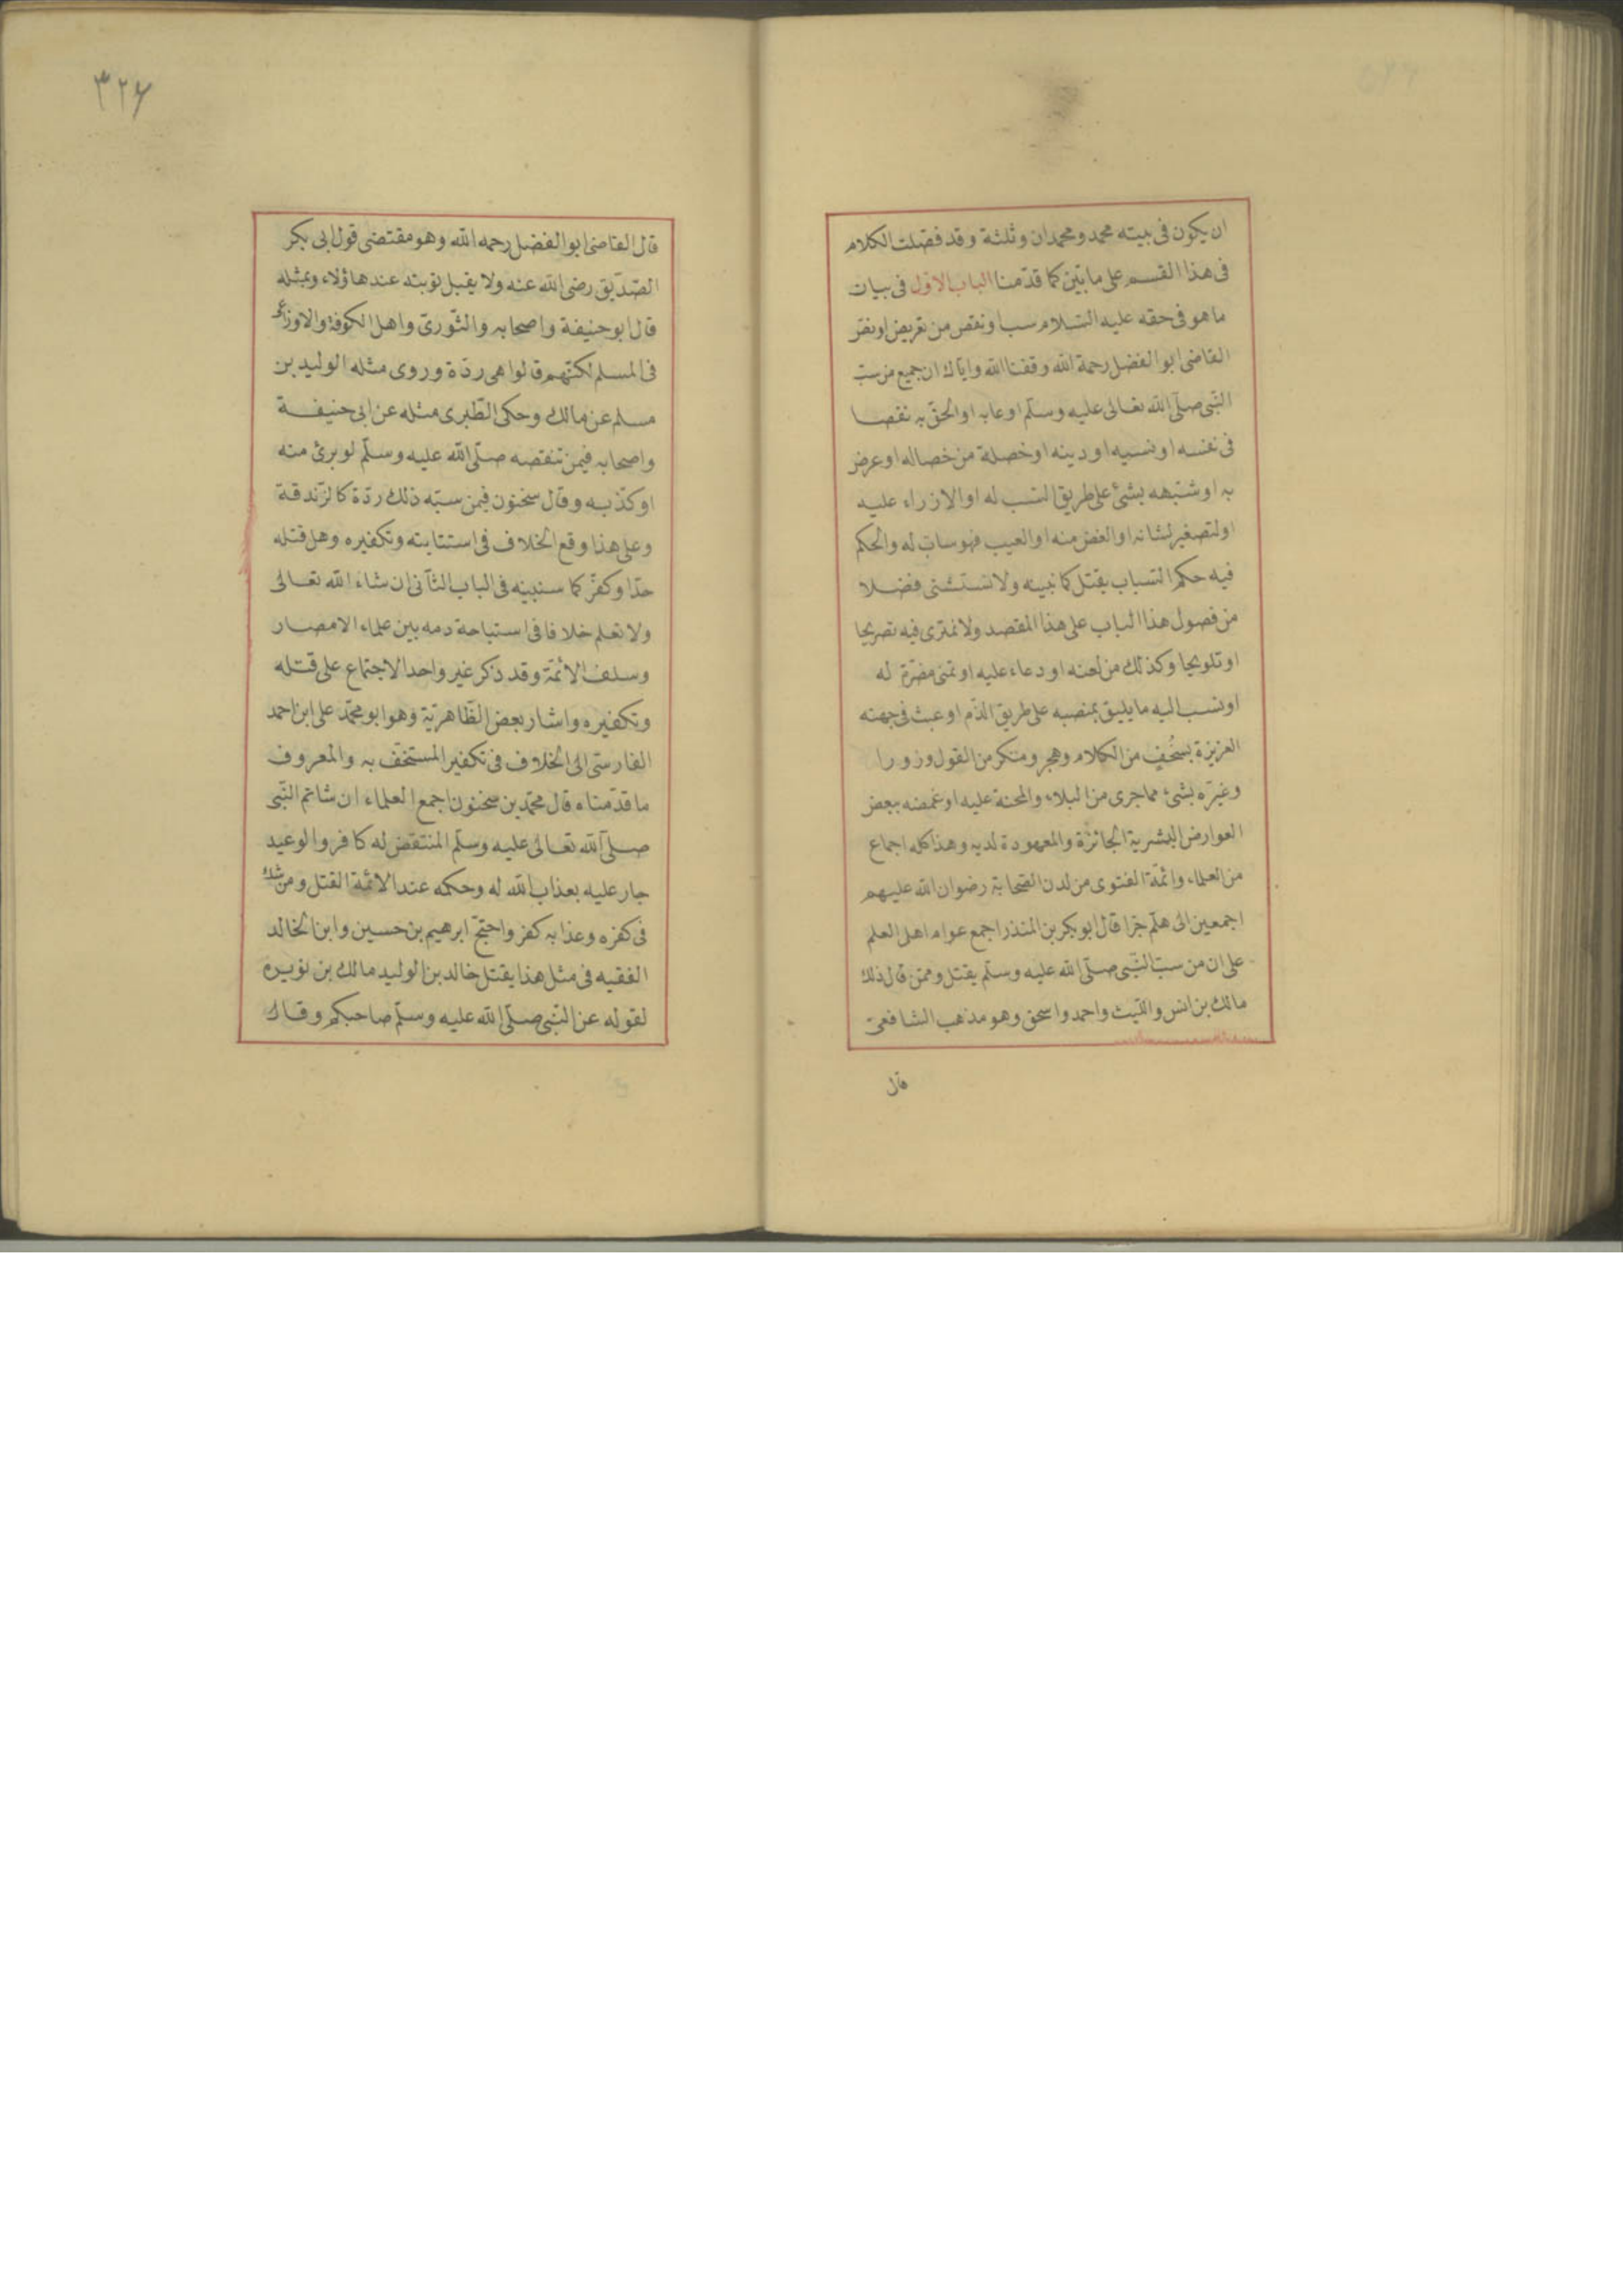 ان يكون فى بيته محمد ومحمدان وثلثة وقد فصّلت الكلام
فى هذا القسم على مابين كما قدّمنا الباب الاوّل فى بيان
ما هو فى حقه عليه السّلام سب او نقص من تعريض او نصّ
القاضى ابو الفضل رحمة الله وفقنا الله واياك ان جميع من سبّ
النّبى صلّى الله تعالى عليه وسلّم او عابه او الحق به نقصا
فى نفسه او نسبه او دينه او خصلة من خصاله او عرض
به او شبّهه بشئ على طريق السّب له او الازراء عليه
او لتصغير لشانه او الغض منه او العيب فهو سابّ له والحكم
فيه حكم السّباب يقتل كما نبينه ولا نستثنى فضلا
من فصول هذا الباب على هذا المقصد ولا نمترى فيه تصريحا
او تلويحا وكذلك من لعنه او دعاء عليه او تمنى مضرّة له
او نسب اليه ما يليق بمنصبه على طريق الذّم او عبث فى جهته
العزيزة بسخيف من الكلام وهجر ومنكر من القول وزورا
وغيّره بشئ مما جرى من البلاء والمحنة عليه او غمضه ببعض
العوارض البشرية الجائزة والمعهودة لديه وهذا كله اجماع
من العلماء وائمّة الفتوى من لدن الصّحابة رضوان الله عليهم
اجمعين الى هلّم جرّا قال ابو بكر بن المنذر اجمع عوام اهل العلم
على ان من سبّ النّبى صلّى الله عليه وسلّم يقتل وممن قال ذلك
مالك بن انس واللّيث واحمد واسحق وهو مذهب الشافعىّ
قال
٣٢٦
قال القاضى ابو الفضل رحمه الله وهو مقتضى قول ابى بكر
الصّدّيق رضى الله عنه ولا يقبل توبته عند هاؤلاء وبمثله
قال ابو حنيفة واصحابه والثّورىّ واهل الكوفة والاوزاعى
فى المسلم لكنّهم قالوا هى ردّة وروى مثله الوليد بن
مسلم عن مالك وحكى الطّبرى مثله عن ابى حنيفة
واصحابه فيمن تنقصه صلّى الله عليه وسلّم لو برئ منه
او كذّبه وقال سخنون فيمن سبّه ذلك ردّة كالزّندقة
وعلى هذا وقع الخلاف فى استتابته وتكفيره وهل قتله
حدّا وكفّر كما سنبينه فى الباب الثّانى ان شاء الله تعالى
ولا نعلم خلافا فى استباحة دمه بين علماء الامصار
وسلف الائمّة وقد ذكر غير واحد الاجتماع على قتله
وتكفيره واشار بعض الظّاهريّة وهو ابو محمّد على ابن احمد
الفارسىّ الى الخلاف فى تكفير المستخّف به والمعروف
ما قدّمناه قال محمّد بن سخنون اجمع العلماء ان شاتم النّبى
صلّى الله تعالى عليه وسلّم المنتقض له كافر والوعيد
جار عليه بعذاب الله له وحكمه عند الائمّة القتل ومن شك
فى كفره وعذابه كفر واحتجّ ابرهيم بن حسين وابن الخالد
الفقيه فى مثل هذا يقتل خالد بن الوليد مالك بن نويره
لقوله عن النّبى صلّى الله عليه وسلّم صاحبكم وقال